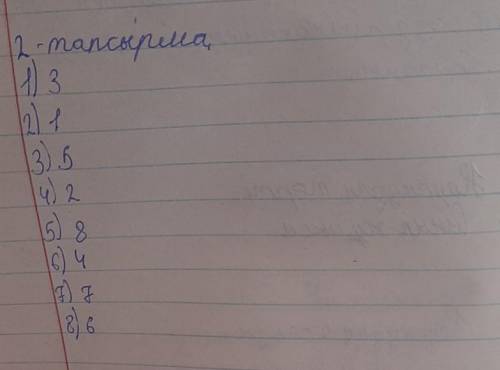 2-тапсырма
1) 3
2) 1
3) 5
4) 2
5) 8
6) 4
7) 7
8) 6